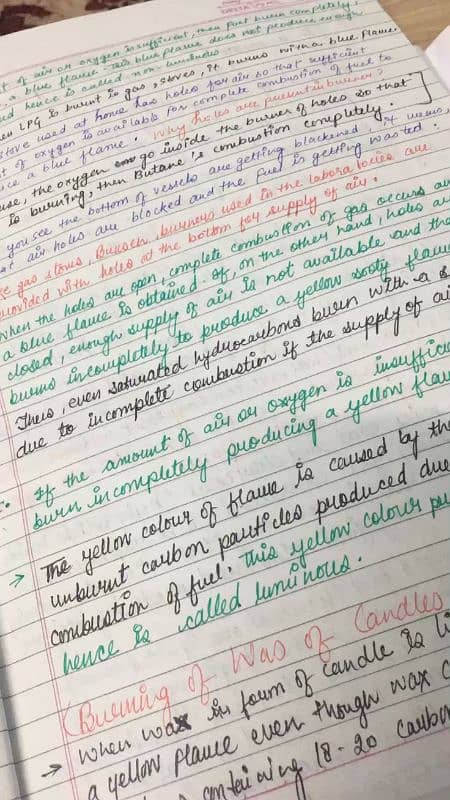 t of air or oxygen is sufficient, then fuel burns completely,
a blue flame. This blue flame does not produce enough
and hence is called non-luminous
When LPG is burnt in gas stoves, it burns with a blue flame.
stove used at home has holes for air so that sufficient
t of oxygen is available for complete combustion of fuel to
uce a blue flame. Why holes are present in burner?
use, the oxygen go inside the burner of holes so that
is burning, then Butane's combustion completely.
you see the bottom of vessels are getting blackened, it means,
at air holes are blocked and the fuel is getting wasted.
ke gas stoves, Bunsen burners used in the laboratories are
provided with holes at the bottom for supply of air.
When the holes are open, complete combustion of gas occurs an
a blue flame is obtained. If, on the other hand, holes ar
closed, enough supply of air is not available and the
burns incompletely to produce a yellow sooty flame
Thus, even saturated hydrocarbons burn with a s
due to incomplete combustion if the supply of ai
If the amount of air or oxygen is insufficie
burn incompletely producing a yellow flam
→ The yellow colour of flame is caused by the
unburnt carbon particles produced due
combustion of fuel. This yellow colour pr
hence is called luminous.
(Burning of Wax of Candles
→ When wax in form of candle is li
a yellow flame even though wax c
containing 18-20 carbon